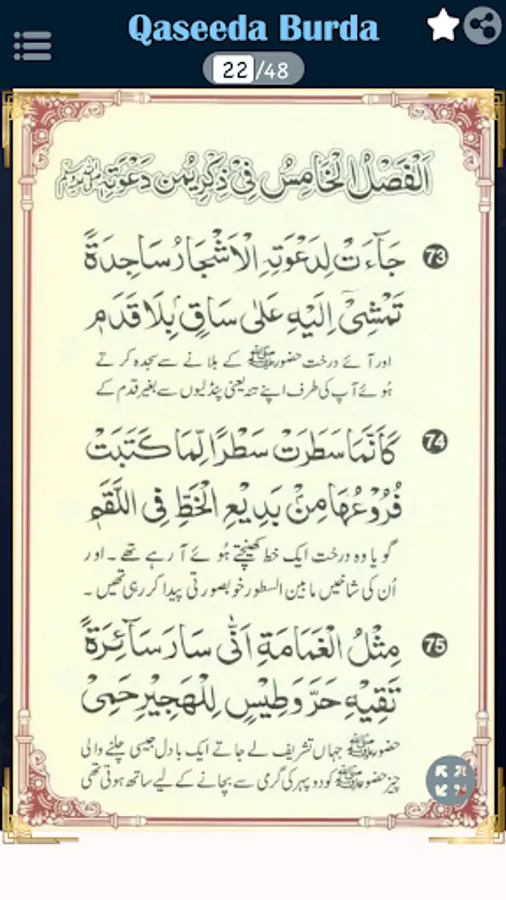 Qaseeda Burda
22/48
اَلْفَصْلُ الْخَامِسُ فِيْ ذِكْرِ يُمْنِ دَعْوَتِهٖ ﷺ
73 جَآءَتْ لِدَعْوَتِهِ الْاَشْجَارُ سَاجِدَةً
تَمْشِيْٓ اِلَيْهِ عَلٰى سَاقٍ ۢ بِلَا قَدَمٖ
اور آئے درخت حضور ﷺ کے بلانے سے سجدہ کرتے
ہُوئے آپ کی طرف اپنے تنہ یعنی پنڈلیوں سے بغیر قدم کے
74 كَاَنَّمَا سَطَرَتْ سَطْرًا لِّمَا كَتَبَتْ
فُرُوْعُهَا مِنْ بَدِيْعِ الْخَطِّ فِي اللَّقَمٖ
گویا وہ درخت ایک خط کھینچتے ہُوئے آ رہے تھے ۔ اور
اُن کی شاخیں مابین السطور خوبصورتی پیدا کر رہی تھیں ۔
75 مِثْلُ الْغَمَامَةِ اَنّٰى سَارَ سَآئِرَةً
تَقِيْهِ حَرَّ وَطِيْسٍ لِلْهَجِيْرِ حَمِيْ
حضور ﷺ جہاں تشریف لے جاتے ایک بادل جیسی چلنے والی
چیز حضور ﷺ کو دوپہر کی گرمی سے بچانے کے لیے ساتھ ہوتی تھی